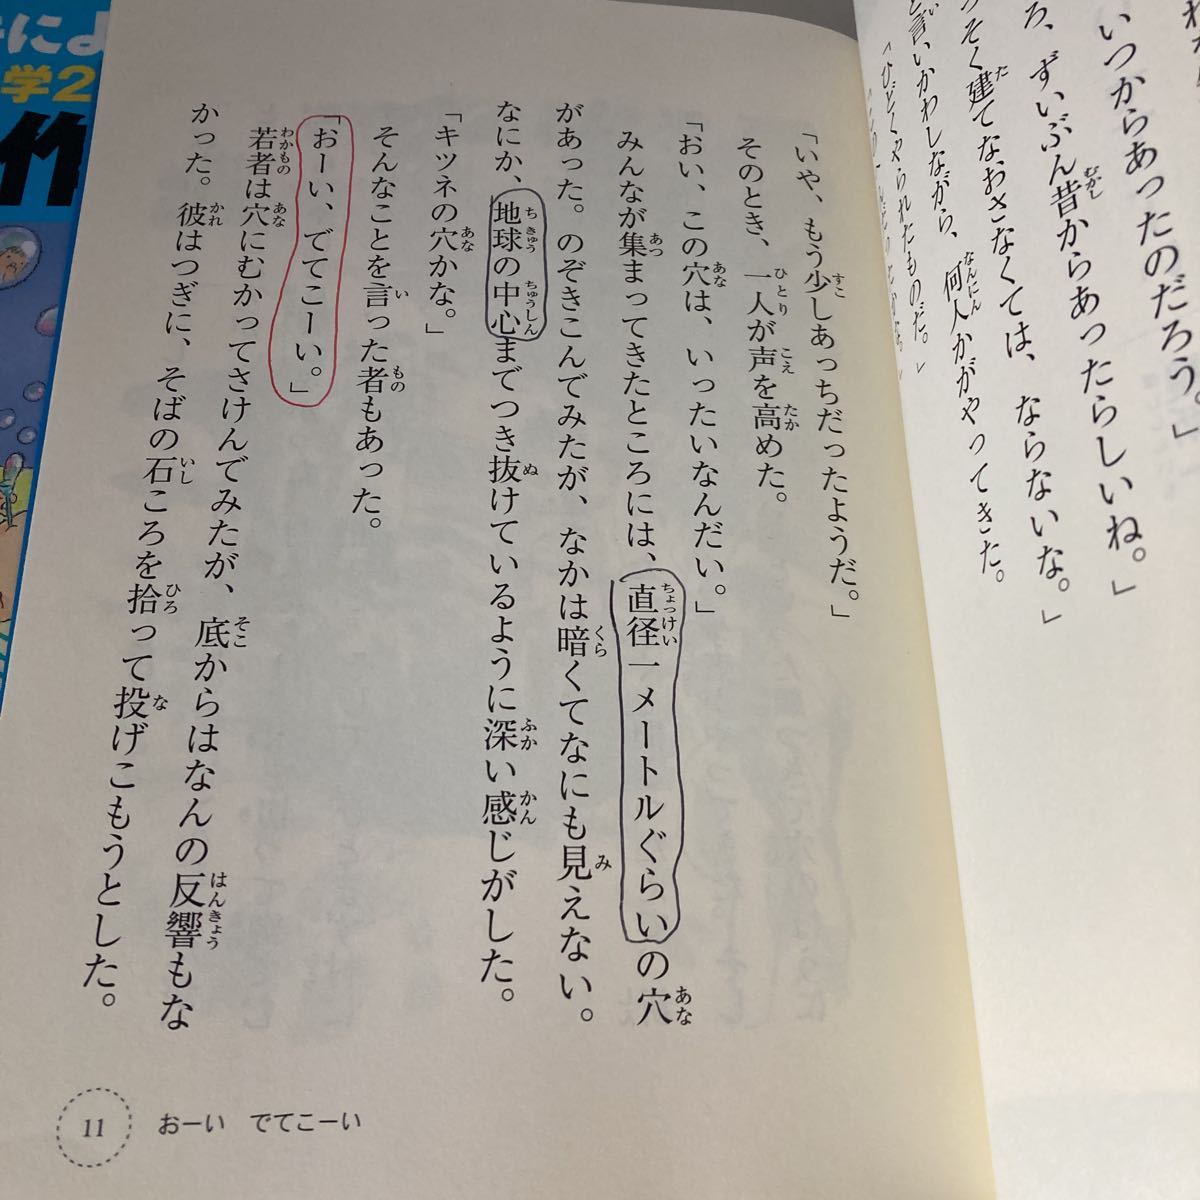 いつからあったのだろう。」
ろ、ずいぶん昔からあったらしいね。」
っそく建てなおさなくては、ならないな。」
と言いかわしながら、何人かがやってきた。
「ひどくやられたものだ。」
「いや、もう少しあっちだったようだ。」
そのとき、一人が声を高めた。
「おい、この穴は、いったいなんだい。」
みんなが集まってきたところには、直径一メートルぐらいの穴
があった。のぞきこんでみたが、なかは暗くてなにも見えない。
なにか、地球の中心までつき抜けているように深い感じがした。
「キツネの穴かな。」
そんなことを言った者もあった。
「おーい、でてこーい。」
若者は穴にむかってさけんでみたが、底からはなんの反響もな
かった。彼はつぎに、そばの石ころを拾って投げこもうとした。
11 おーい でてこーい
によ
学2
作